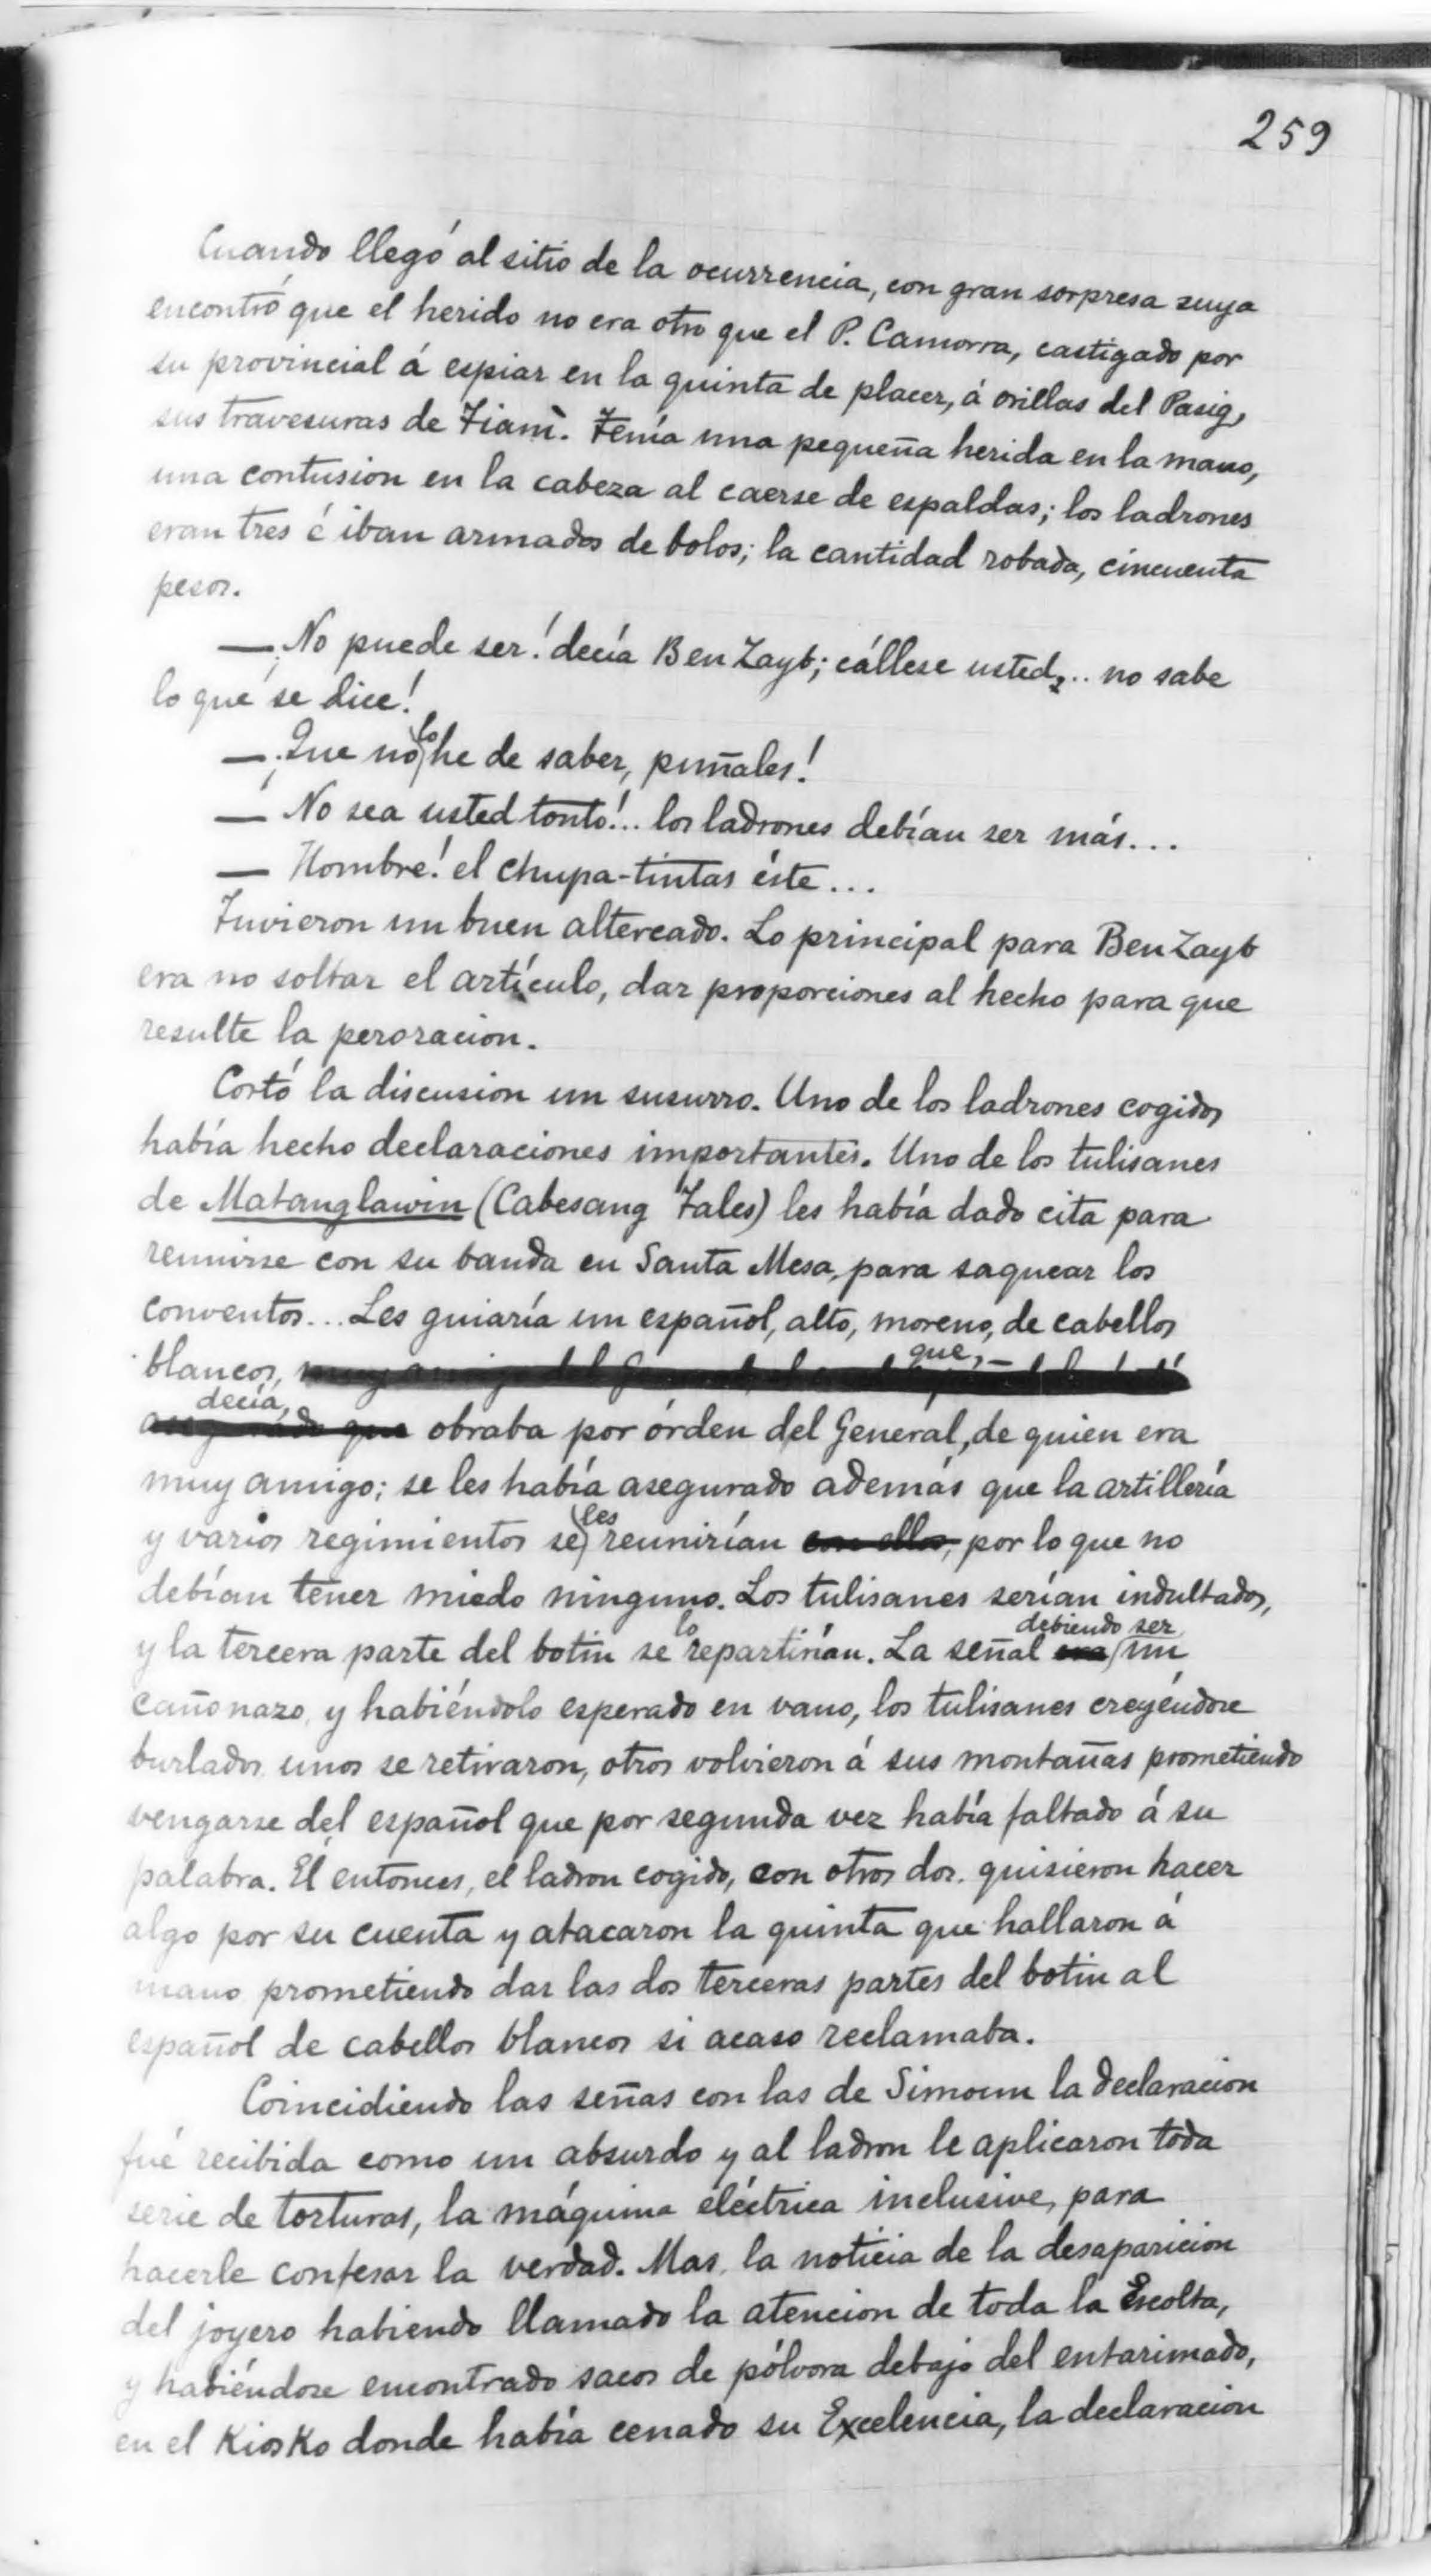 259
Cuando llegó al sitio de la ocurrencia, con gran sorpresa suya
encontró que el herido no era otro que el P. Camorra, castigado por
su provincial á espiar en la quinta de placer, á orillas del Pasig,
sus travesuras de Tianì. Tenía una pequeña herida en la mano,
una contusion en la cabeza al caerse de espaldas; los ladrones
eran tres é iban armados de bolos; la cantidad robada, cincuenta
pesos.
— ¡No puede ser! decía Ben Zayb; cállese usted... no sabe
lo que se dice!
— ¡Que no lo he de saber, puñales!
— No sea usted tonto!.. los ladrones debían ser más...
— Hombre! el chupa-tintas éste...
Tuvieron un buen altercado. Lo principal para Ben Zayb
era no soltar el artículo, dar proporciones al hecho para que
resulte la peroracion.
Cortó la discusion un susurro. Uno de los ladrones cogidos
había hecho declaraciones importantes. Uno de los tulisanes
de Matanglawin (Cabesang Tales) les había dado cita para
reunirse con su banda en Santa Mesa, para saquear los
conventos... Les guiaría un español, alto, moreno, de cabellos
blancos, que,
decía,
obraba por órden del General, de quien era
muy amigo; se les había asegurado además que la artillería
y varios regimientos se les reunirían con ellos, por lo que no
debían tener miedo ninguno. Los tulisanes serían indultados,
y la tercera parte del botin se lo repartirían. La señal era debiendo ser un
cañonazo, y habiéndolo esperado en vano, los tulisanes creyéndose
burlados unos se retiraron, otros volvieron á sus montañas prometiendo
vengarse del español que por segunda vez había faltado á su
palabra. El entonces, el ladron cogido, con otros dos quisieron hacer
algo por su cuenta y atacaron la quinta que hallaron á
mano prometiendo dar las dos terceras partes del botin al
español de cabellos blancos si acaso reclamaba.
Coincidiendo las señas con las de Simoun la declaracion
fué recibida como un absurdo y al ladron le aplicaron toda
serie de torturas, la máquina eléctrica inclusive, para
hacerle confesar la verdad. Mas, la noticia de la desaparicion
del joyero habiendo llamado la atencion de toda la Escolta,
y habiéndose encontrado sacos de pólvora debajo del entarimado,
en el KiosKo donde había cenado su Excelencia, la declaracion